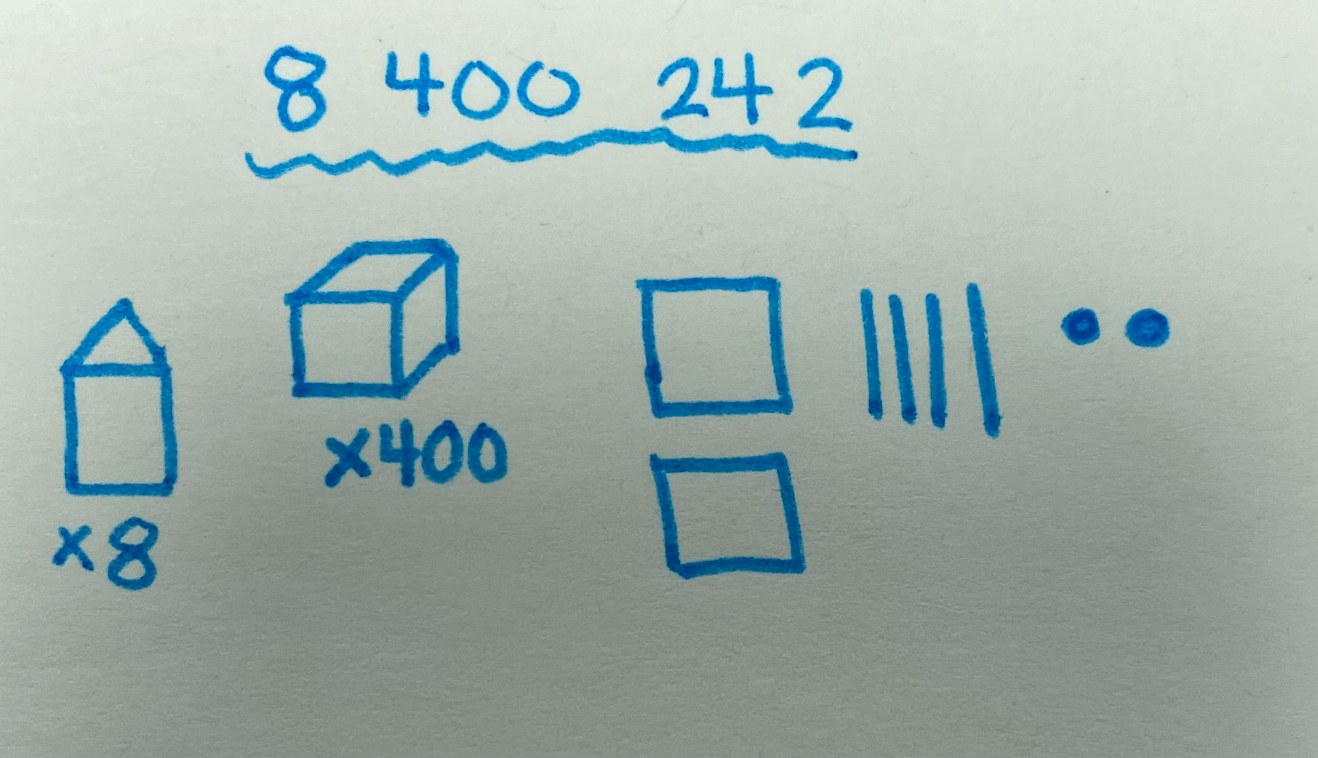 8 400 242
x400
x8